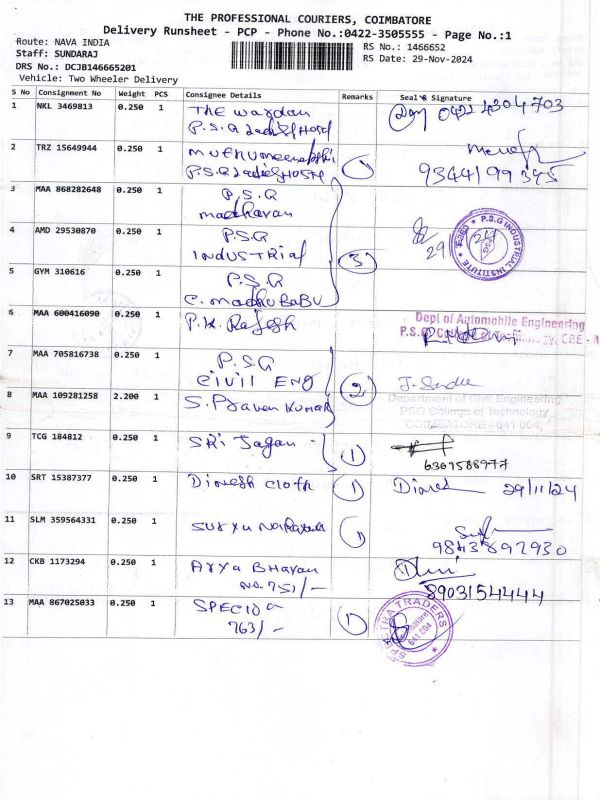 THE PROFESSIONAL COURIERS, COIMBATORE
Delivery Runsheet - PCP - Phone No.:0422-3505555 - Page No.:1
Route: NAVA INDIA
Staff: SUNDARAJ
DRS No.: DCJB146665201
Vehicle: Two Wheeler Delivery
RS No.: 1466652
RS Date: 29-Nov-2024
S No Consignment No Weight PCS Consignee Details Remarks Seal & Signature
1 NKL 3469813 0.250 1 The Warden 0422 4304703
P.S.G Ladies Hostel
2 TRZ 15649944 0.250 1 1
P.S.G Ladies HOSTEL 9344199345
3 MAA 868282648 0.250 1 P.S.G
madhavan
4 AMD 29530870 0.250 1 P.S.G 3 29
INDUSTRIAL
P.S.G INDUSTRIAL INSTITUTE
5 GYM 310616 0.250 1 P.S.G
C. MADHU BABU
6 MAA 600416090 0.250 1 P.K. Rajesh
Dept of Automobile Engineering
7 MAA 705816738 0.250 1 P.S.G
CIVIL ENG 2
8 MAA 109281258 2.200 1 S. Praven Kumar
Department of Civil Engineering
PSG College of Technology
COIMBATORE - 641 004.
9 TCG 184812 0.250 1 SRi Jagan 1
6301588977
10 SRT 15387377 0.250 1 Dinesh cloth 1 29/11/24
11 SLM 359564331 0.250 1 1
9843892930
12 CKB 1173294 0.250 1 Arya BHavan
NO.751/- 8903154444
13 MAA 867025033 0.250 1 1
763/-
TRADERS
641 004